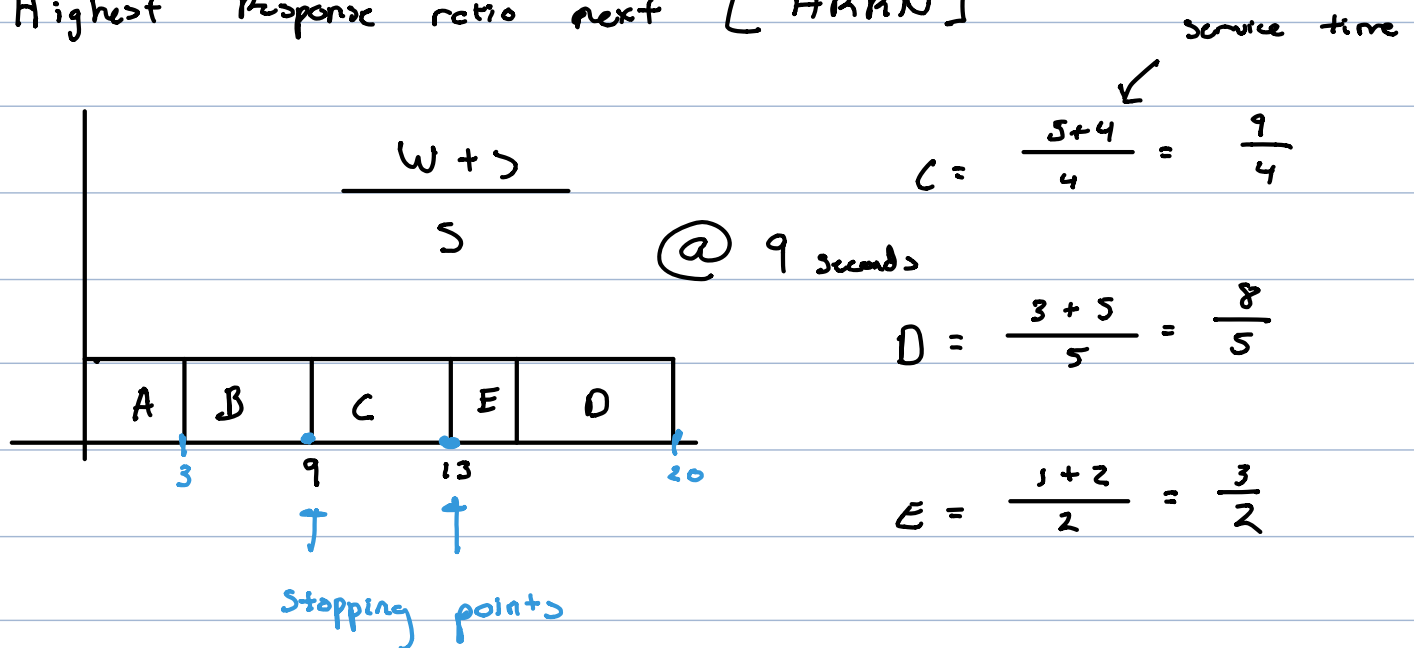 Highest Response ratio next [HRRN]
service time
W + S
S
@ 9 seconds
C = 5+4 / 4 = 9 / 4
D = 3 + 5 / 5 = 8 / 5
E = 1 + 2 / 2 = 3 / 2
A B C E D
3 9 13 20
Stopping points